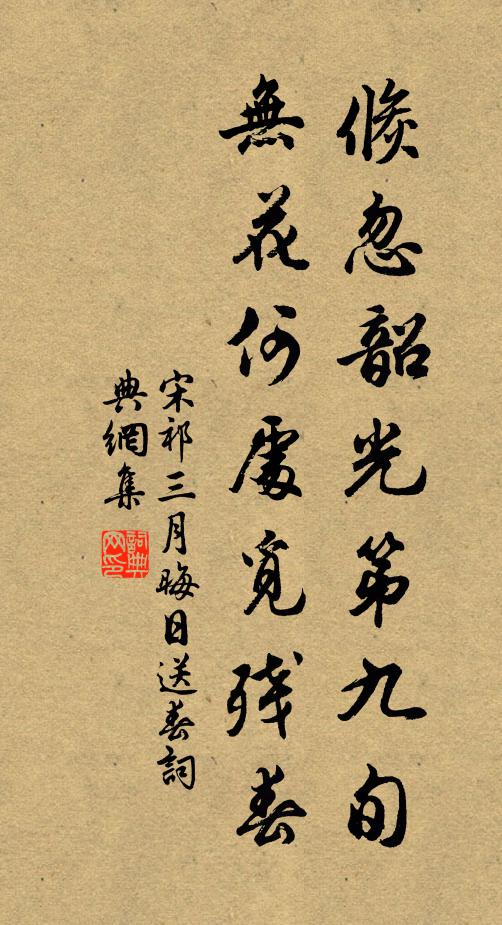 倐忽韶光第九旬
無花何處覓殘春
宋祁三月晦日送春詞
典網集
詞典网印